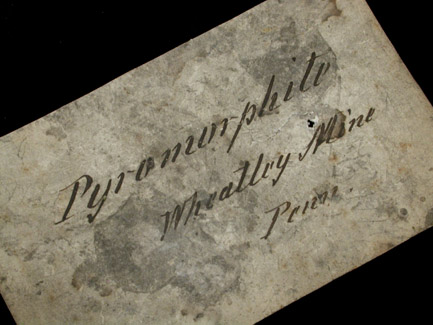 Pyromorphite
Wheatley Mine
Penn.